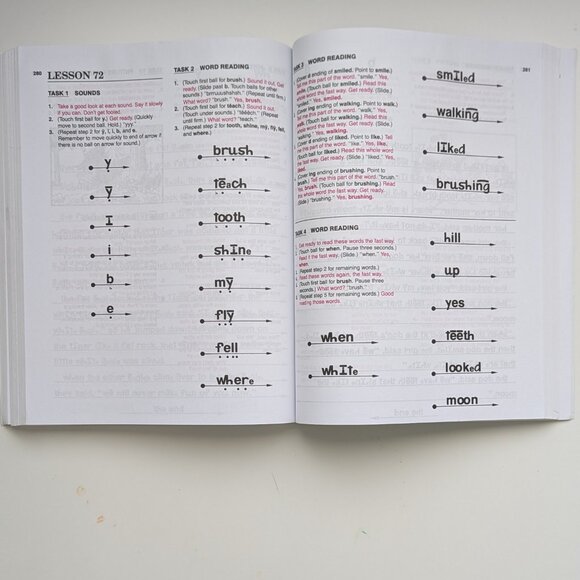 280
LESSON 72
TASK 1 SOUNDS
1. Take a good look at each sound. Say it slowly
if you can. Don't get fooled.
2. (Touch first ball for y.) Get ready. (Quickly
move to second ball. Hold.) "yyy."
3. (Repeat step 2 for ȳ, I, i, b, and e.
Remember to move quickly to end of arrow if
there is no ball on arrow for sound.)
y
ȳ
I
i
b
e
TASK 2 WORD READING
1. (Touch first ball for brush.) Sound it out. Get
ready. (Slide past b. Touch balls for other
sounds.) (Repeat until firm.)
What word? "brush." Yes, brush.
2. (Touch first ball for tēach.) Sound it out.
(Touch under sounds.) (Repeat
until firm.) What word? "teach."
3. (Repeat step 2 for tooth, shine, mȳ, flȳ, fell,
and where.)
brush
tēach
tooth
shIne
mȳ
flȳ
fell
where
TASK 3 WORD READING
281
(Cover d ending of smiled. Point to smile.)
Tell me this part of the word. "smile." Yes,
smile. (Touch ball for smiled.) Read this
whole word the fast way. Get ready. (Slide.)
"smiled." Yes, smiled.
(Cover ing ending of walking. Point to walk.)
Tell me this part of the word. "walk." Yes,
walk. (Touch ball for walking.) Read this
whole word the fast way. Get ready. (Slide.)
"walking." Yes, walking.
(Cover d ending of liked. Point to like.) Tell
me this part of the word. "like." Yes, like.
(Touch ball for liked.) Read this whole word
the fast way. Get ready. (Slide.) "liked." Yes,
liked.
(Cover ing ending of brushing. Point to
brush.) Tell me this part of the word. "brush."
Yes, brush. (Touch ball for brushing.) Read
this whole word the fast way. Get ready.
(Slide.) "brushing." Yes, brushing.
smIled
walking
lIked
brushing
TASK 4 WORD READING
Get ready to read these words the fast way.
(Touch ball for when. Pause three seconds.)
Read it the fast way. (Slide.) "when." Yes,
when.
(Repeat step 2 for remaining words.)
Read these words again, the fast way.
(Touch first ball for brush. Pause three
seconds.) What word? "brush."
(Repeat step 5 for remaining words.) Good
reading those words.
when
whIte
hill
up
yes
tēēth
looked
moon